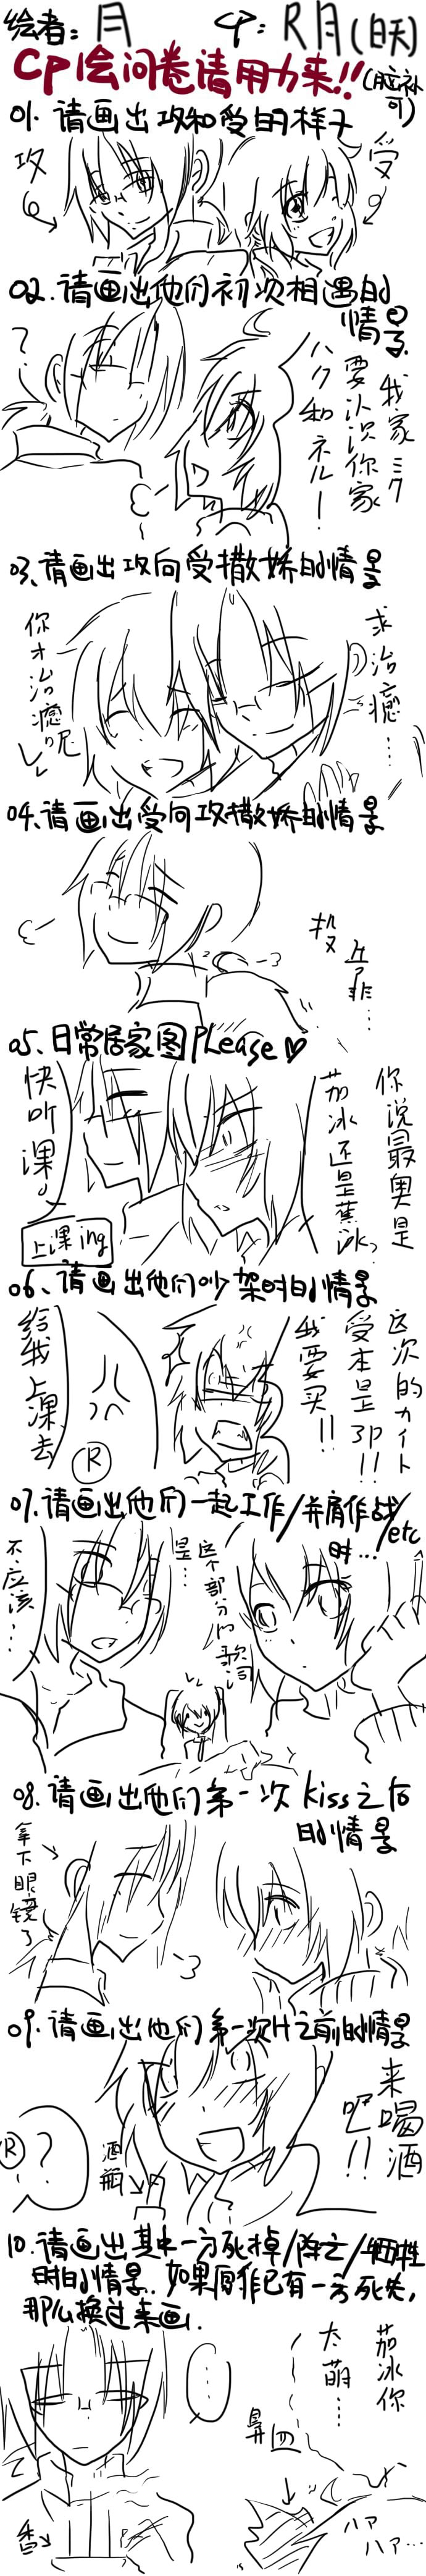 绘者:月 CP:R月(白天)
CP绘问卷请用力来!!(脑补可)
01.请画出攻和受的样子
攻
受
02.请画出他们初次相遇的情景.
?
我家ミク
要认识你家
ハク和ネル!
03.请画出攻向受撒娇的情景
求治癒…
你才治癒呢
04.请画出受向攻撒娇的情景
投
05.日常居家图please♡
你说最奥是
茄冰还是蕉冰?
快听课。
上课ing
06.请画出他们吵架时的情景
这次的カイト
受本是3P!!
我要买!!
给我上课去
R
07.请画出他们一起工作/并肩作战/etc时…
这个部分的歌词
是…
不应该…
08.请画出他们第一次kiss之后的情景
拿下眼镜了
09.请画出他们第一次H之前的情景
来喝酒吧!!
酒瓶
R
?
10.请画出其中一方死掉/阵亡/牺牲
时的情景.如果原作已有一方死失,
那么换过来画.
茄冰你
太萌…
…
鼻血
香
ハァハァ…